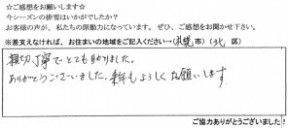 ☆ご感想をお願いします☆
今シーズンの排雪はいかがでしたか？
お客様の声が、私たちの原動力になっています。ぜひ、ご感想をお聞かせ下さい。
※差支えなければ、お住まいの地域をご記入ください→(札幌 市)(北 区)
親切、丁寧でとても助かりました。
ありがとうございました。来年もよろしくお願いします。
ご協力ありがとうございました！